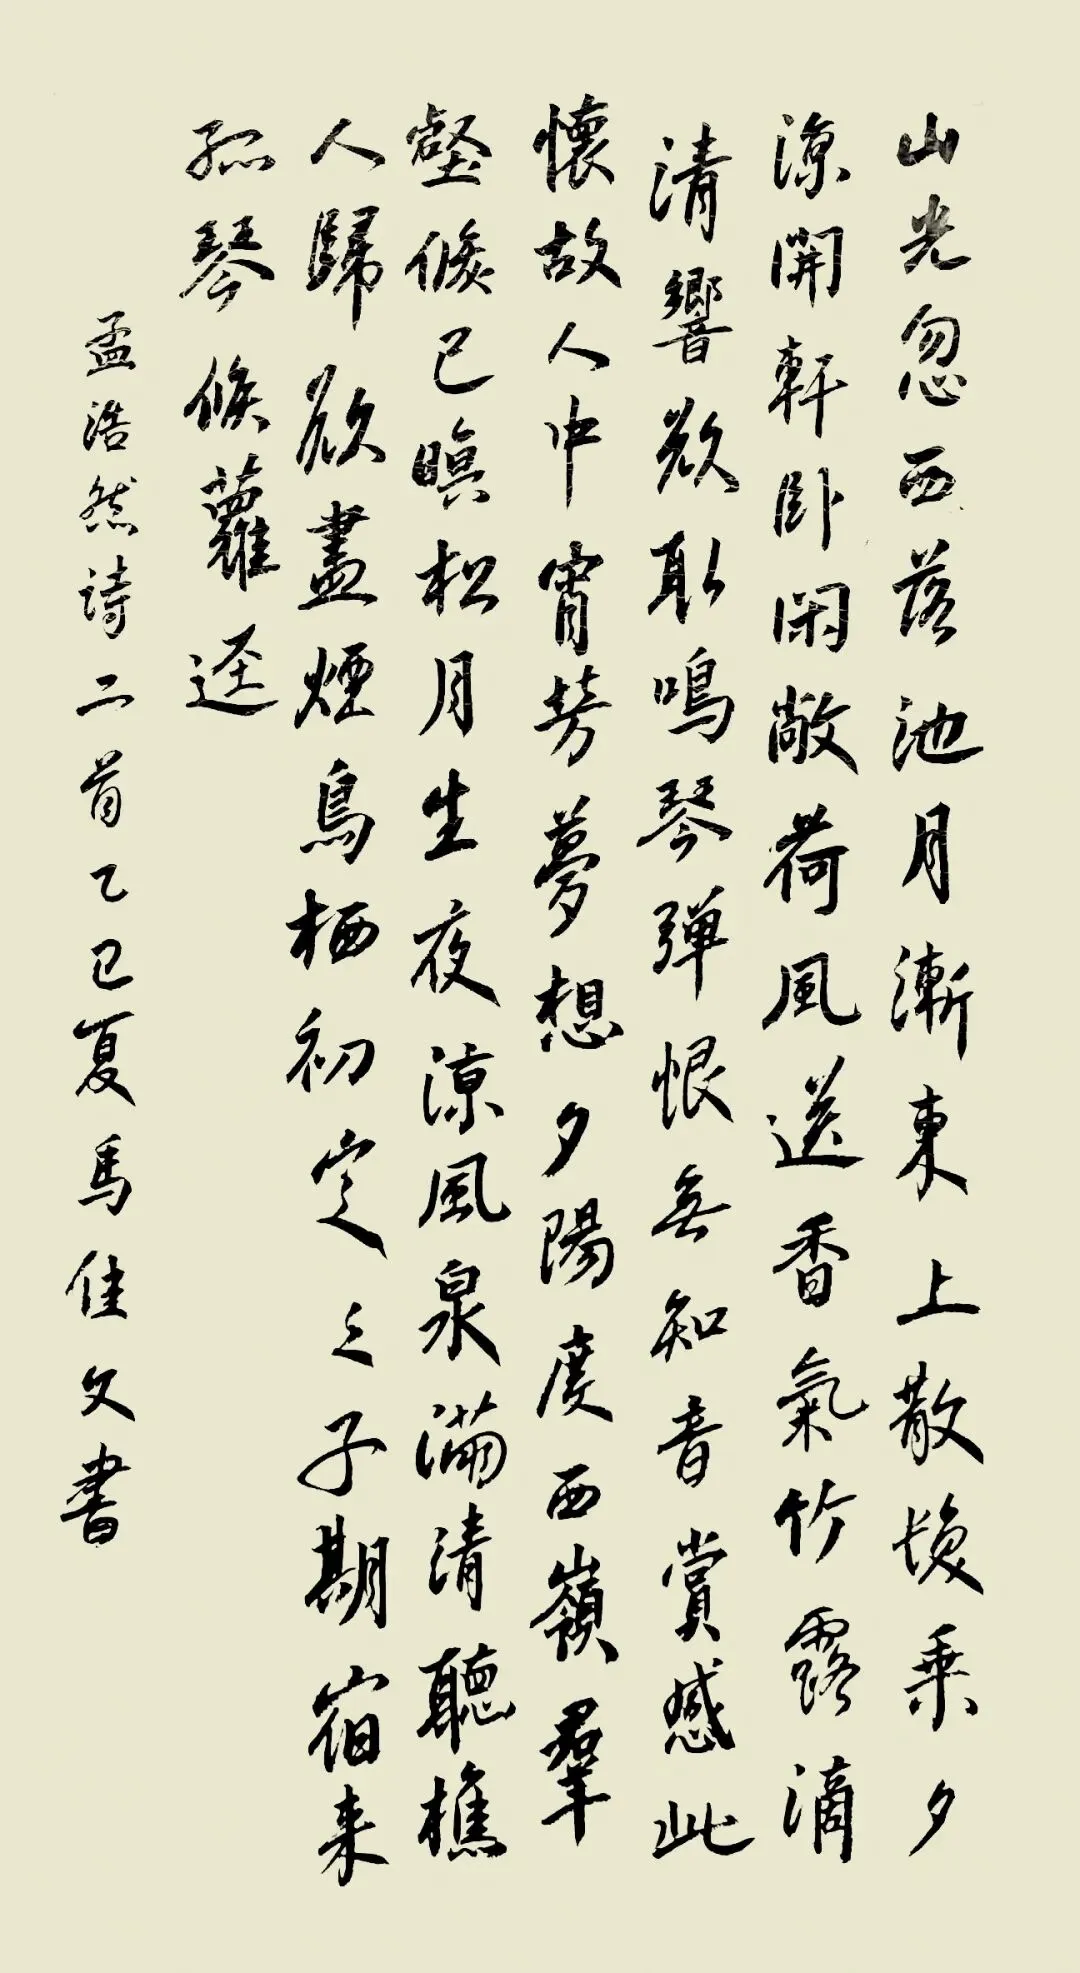 山光忽西落池月漸東上散髮乘夕
涼開軒卧閑敞荷風送香氣竹露滴
清響欲取鳴琴彈恨無知音賞感此
懷故人中宵勞夢想夕陽度西嶺羣
壑倏已暝松月生夜涼風泉滿清聽樵
人歸欲盡煙鳥栖初定之子期宿来
孤琴候蘿逕
孟浩然詩二首乙巳夏馬佳文書